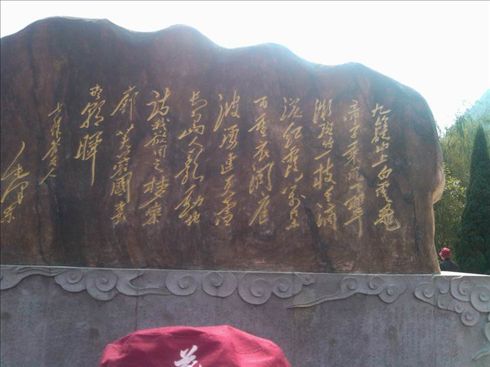 九嶷山上白雲飛
帝子乘风下翠
微斑竹一枝千滴
泪红霞万朵
百重衣洞庭
波涌连天雪
长岛人歌动地
诗我欲因之梦寥
廓芙蓉國里
尽朝晖